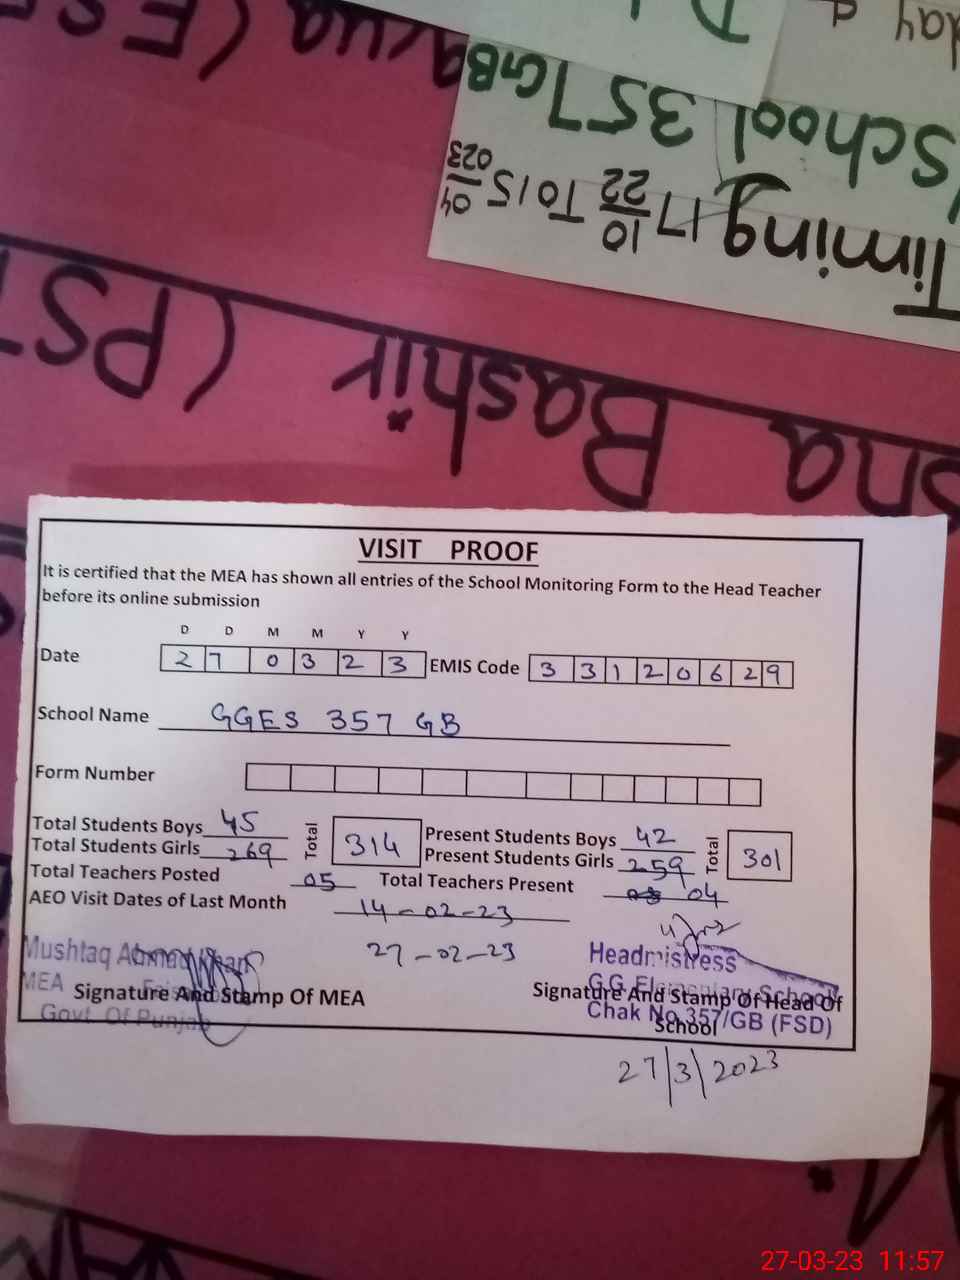 day
School 357 GB
Timing 17 10/22 To 15 04/023
Bashir (PST
VISIT PROOF
It is certified that the MEA has shown all entries of the School Monitoring Form to the Head Teacher
before its online submission
D D M M Y Y
Date 2 7 0 3 2 3 EMIS Code 3 3 1 2 0 6 2 9
School Name GGES 357 GB
Form Number
Total Students Boys 45 Total 314 Present Students Boys 42 Total 301
Total Students Girls 269 Present Students Girls 259
Total Teachers Posted 05 Total Teachers Present 04
AEO Visit Dates of Last Month 14-02-23
27-02-23
Mushtaq Ahmad Khan
MEA
Signature And Stamp Of MEA
Govt. Of Punjab
Headmistress
G.G. Elementary School
Signature And Stamp Of Head Of
School
Chak No.357/GB (FSD)
27/3/2023
27-03-23 11:57